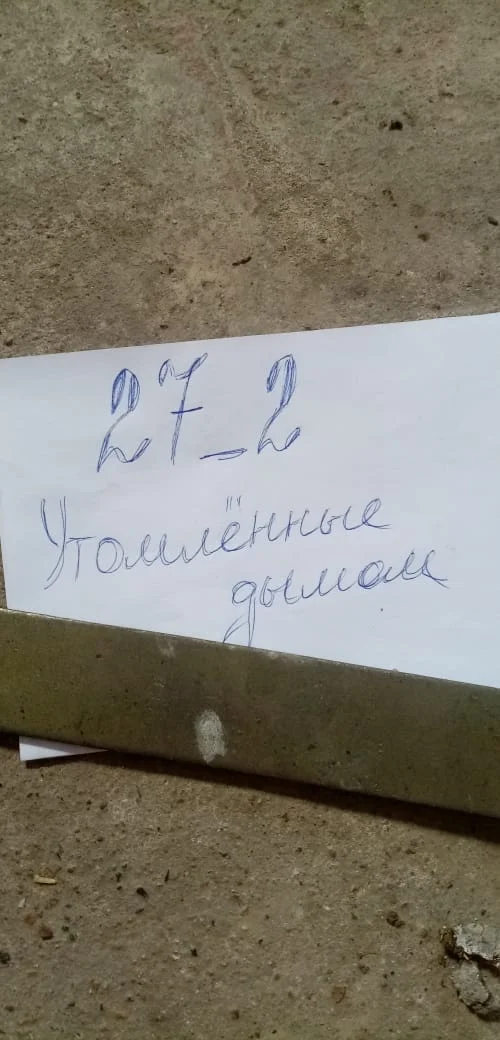 27_2
Утомлённые
дымом